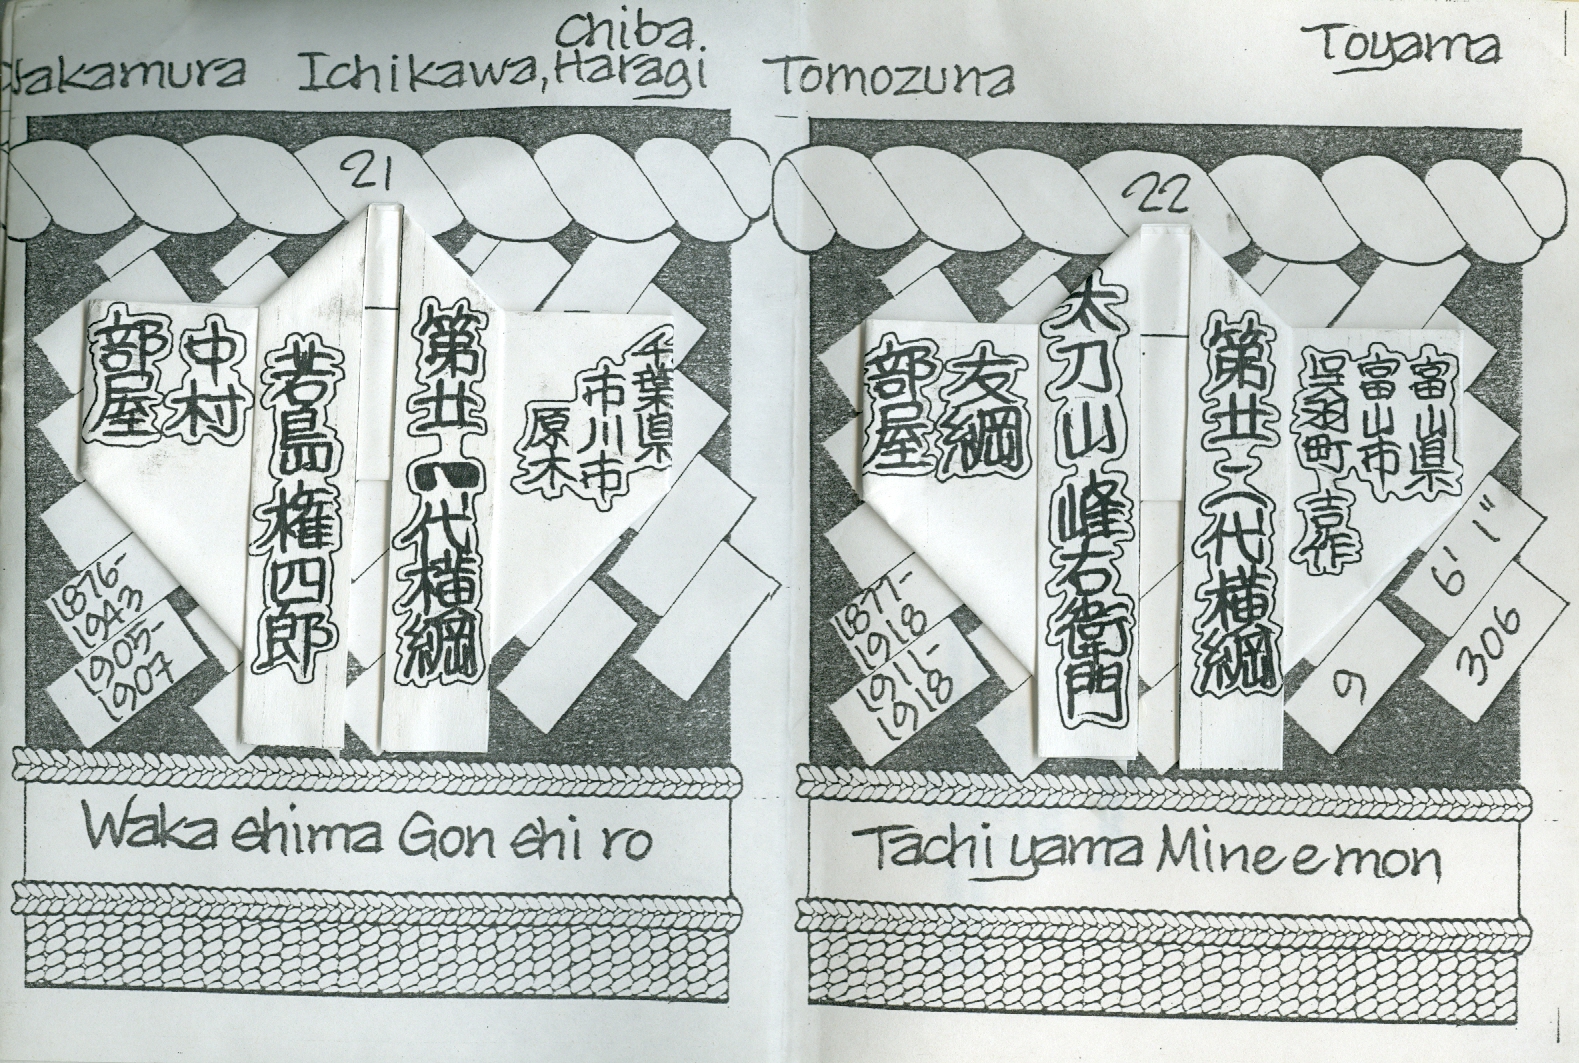 Nakamura Ichikawa, Haragi
Chiba.
21
千葉県
市川市
原木
第廿一代横綱
若島権四郎
中村
部屋
1876-
1943
1905-
1907
Wakashima Gonshiro
Tomozuna
Toyama
22
富山県
富山市
呉羽町吉作
第廿二代横綱
太刀山峰右衛門
友綱
部屋
1877-
1918
1911-
1918
6' 1"
306
9
Tachiyama Mineemon